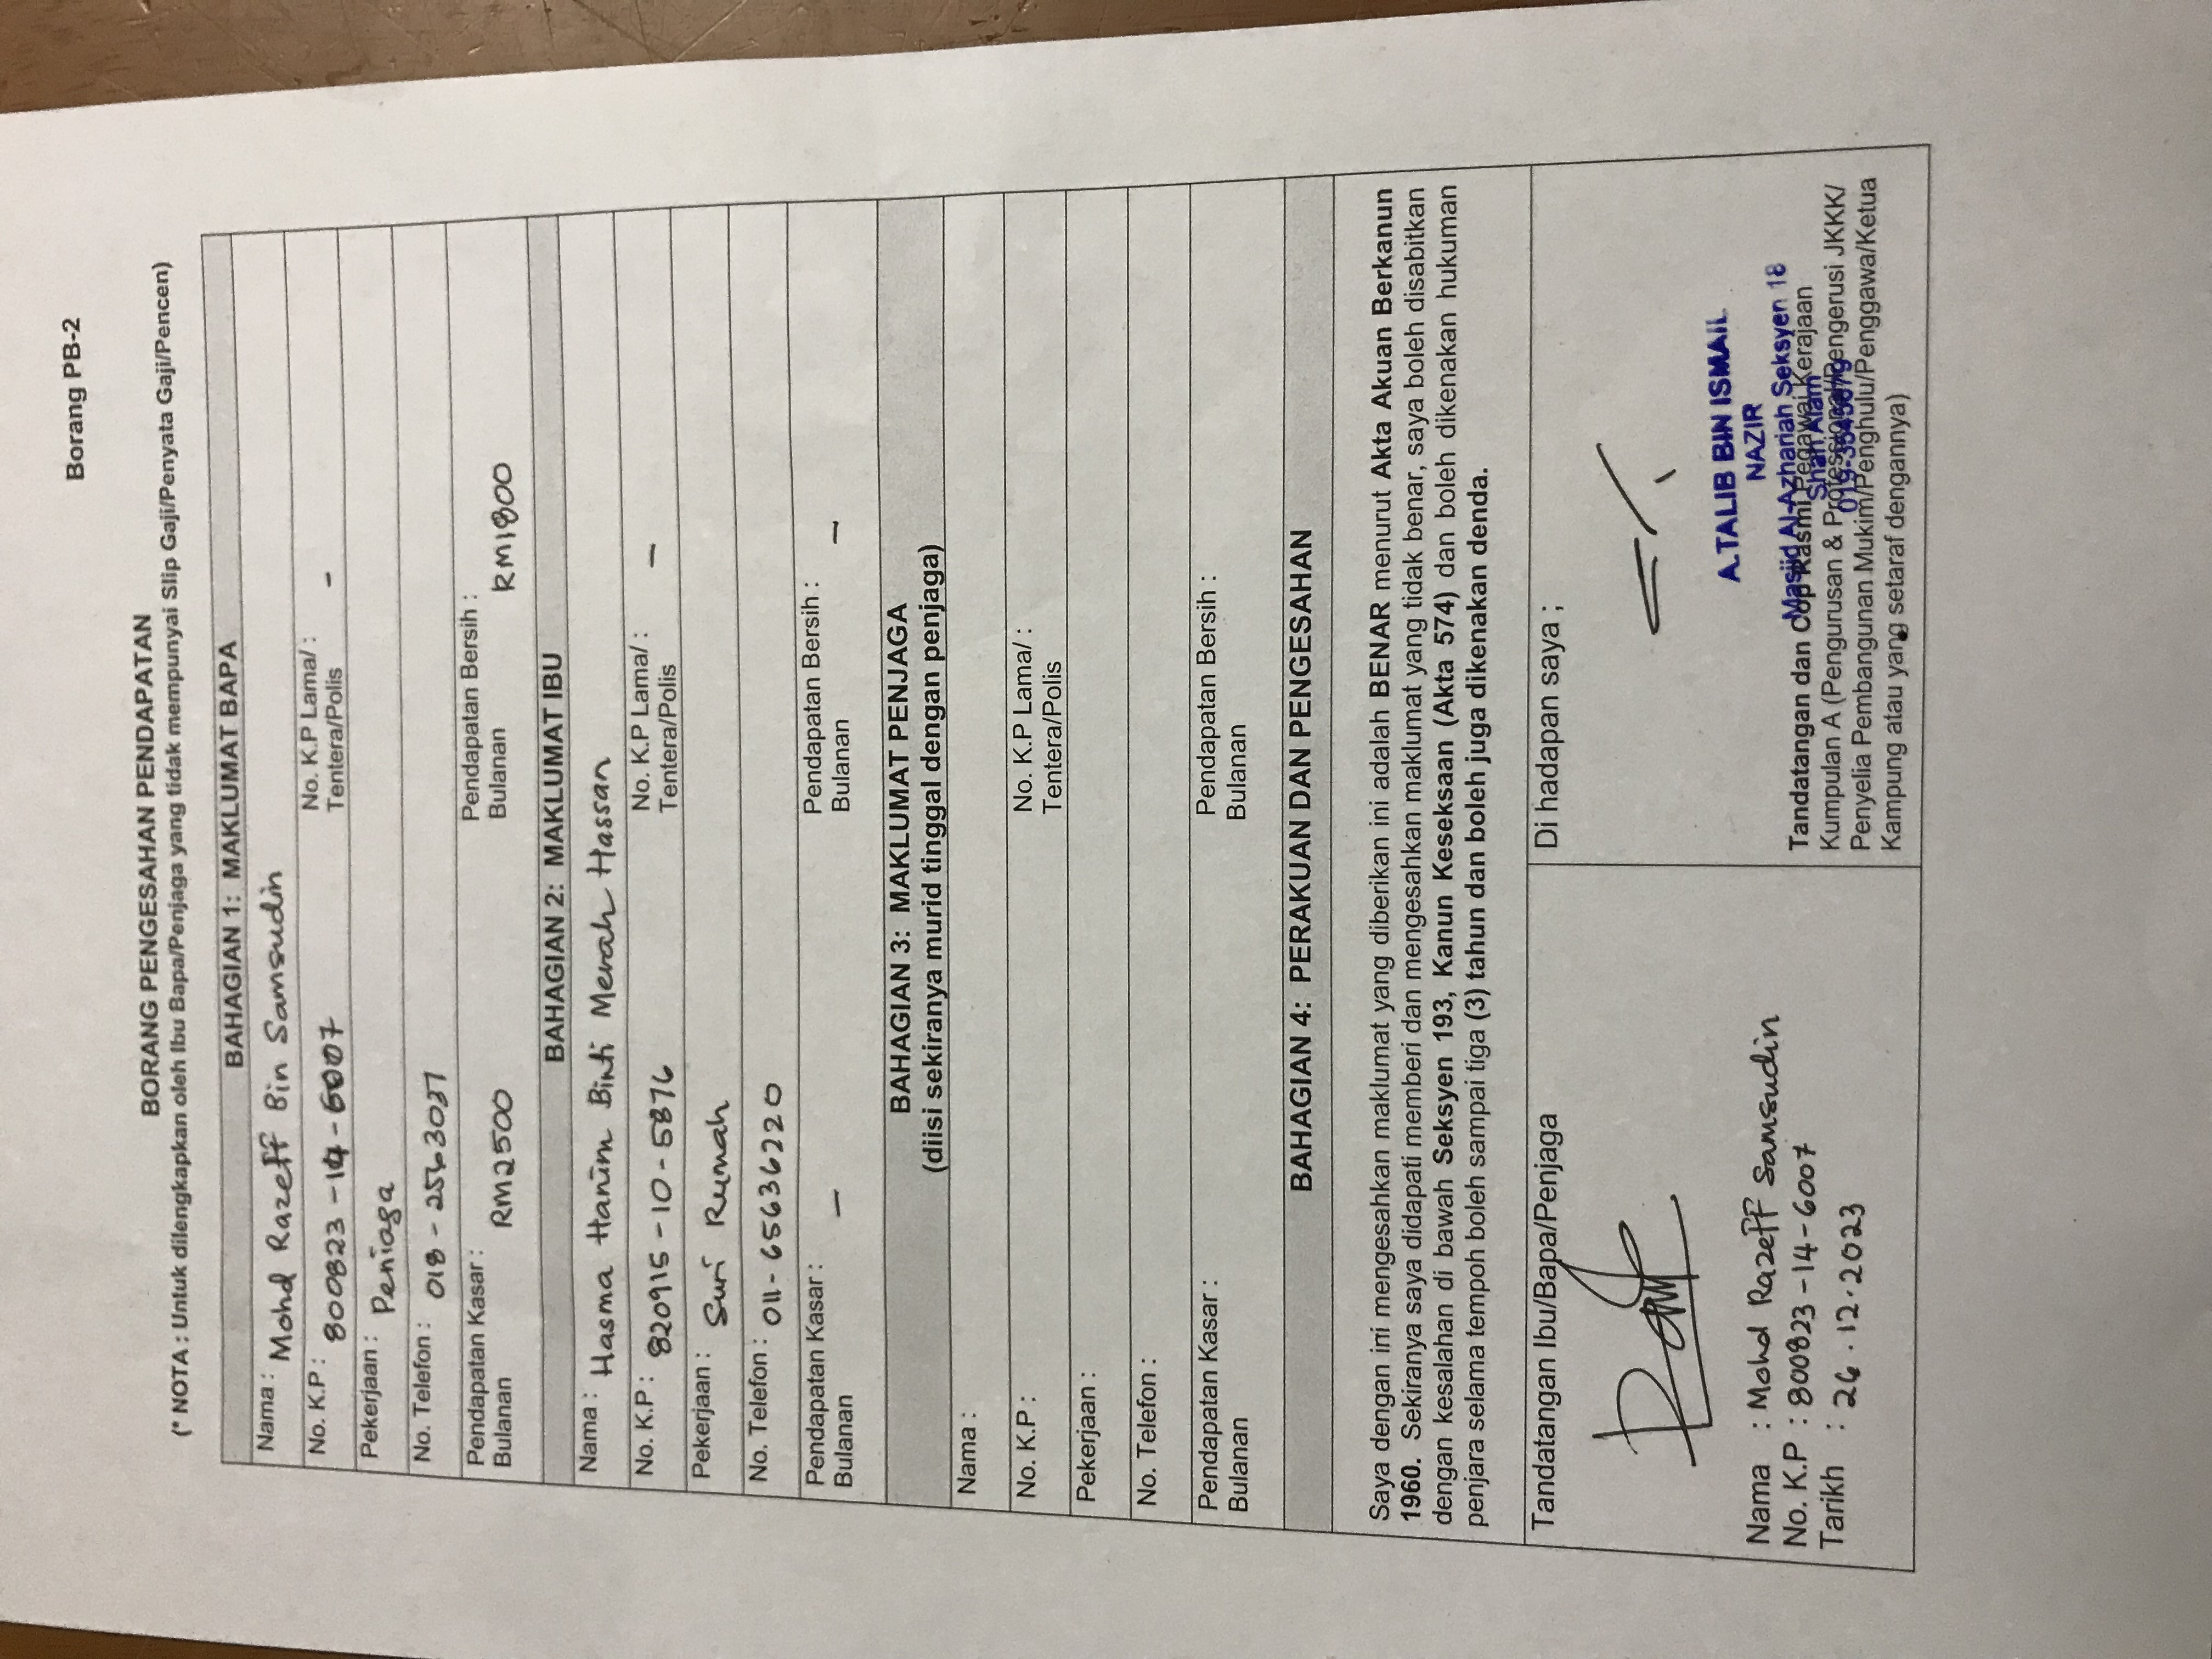 Borang PB-2
BORANG PENGESAHAN PENDAPATAN
(* NOTA : Untuk dilengkapkan oleh Ibu Bapa/Penjaga yang tidak mempunyai Slip Gaji/Penyata Gaji/Pencen)
BAHAGIAN 1: MAKLUMAT BAPA
Nama : Mohd Razeff Bin Samsudin
No. K.P : 800823-14-6007 No. K.P Lama/ :
Tentera/Polis -
Pekerjaan : Peniaga
No. Telefon : 018-2563037
Pendapatan Kasar : Pendapatan Bersih :
Bulanan RM2500 Bulanan RM1800
BAHAGIAN 2: MAKLUMAT IBU
Nama : Hasma Hanim Binti Merah Hassan
No. K.P : 820915-10-5876 No. K.P Lama/ :
Tentera/Polis -
Pekerjaan : Suri Rumah
No. Telefon : 011-65636220
Pendapatan Kasar : Pendapatan Bersih :
Bulanan - Bulanan -
BAHAGIAN 3: MAKLUMAT PENJAGA
(diisi sekiranya murid tinggal dengan penjaga)
Nama :
No. K.P : No. K.P Lama/ :
Tentera/Polis
Pekerjaan :
No. Telefon :
Pendapatan Kasar : Pendapatan Bersih :
Bulanan Bulanan
BAHAGIAN 4: PERAKUAN DAN PENGESAHAN
Saya dengan ini mengesahkan maklumat yang diberikan ini adalah BENAR menurut Akta Akuan Berkanun
1960. Sekiranya saya didapati memberi dan mengesahkan maklumat yang tidak benar, saya boleh disabitkan
dengan kesalahan di bawah Seksyen 193, Kanun Keseksaan (Akta 574) dan boleh dikenakan hukuman
penjara selama tempoh boleh sampai tiga (3) tahun dan boleh juga dikenakan denda.
Tandatangan Ibu/Bapa/Penjaga
Nama : Mohd Razeff Samsudin
No. K.P : 800823-14-6007
Tarikh : 26.12.2023
Di hadapan saya ;
A.TALIB BIN ISMAIL
NAZIR
Masjid Al-Azhariah Seksyen 18
Shah Alam
Tandatangan dan Cop Rasmi Pegawai Kerajaan
Kumpulan A (Pengurusan & Professional/Pengerusi JKKK/
Penyelia Pembangunan Mukim/Penghulu/Penggawa/Ketua
Kampung atau yang setaraf dengannya)